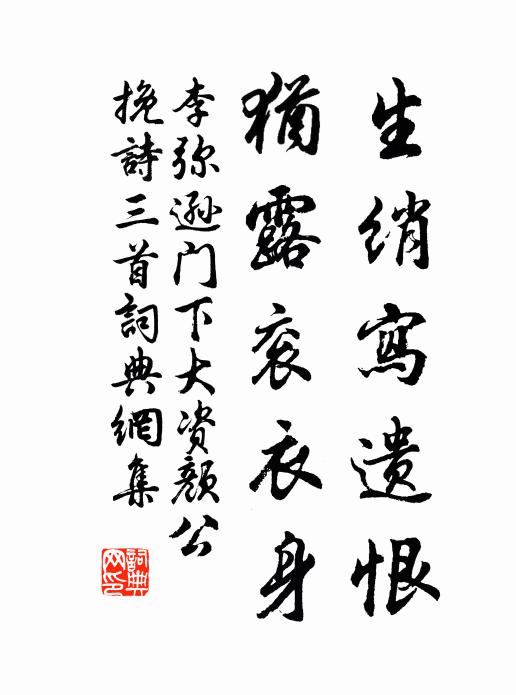 生绡寫遺恨
猶露衮衣身
李弥遜门下大资颜公
挽詩三首詞典網集
詞典网印